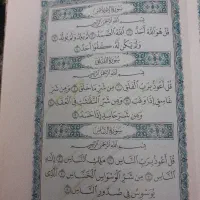 سُورَةُ الْإِخْلَاصِ
بِسْمِ اللَّهِ الرَّحْمَٰنِ الرَّحِيمِ
قُلْ هُوَ اللَّهُ أَحَدٌ ۝ اللَّهُ الصَّمَدُ ۝ لَمْ يَلِدْ وَلَمْ يُولَدْ ۝
وَلَمْ يَكُن لَّهُ كُفُوًا أَحَدٌ ۝
سُورَةُ الْفَلَقِ
بِسْمِ اللَّهِ الرَّحْمَٰنِ الرَّحِيمِ
قُلْ أَعُوذُ بِرَبِّ الْفَلَقِ ۝ مِن شَرِّ مَا خَلَقَ ۝ وَمِن شَرِّ
غَاسِقٍ إِذَا وَقَبَ ۝ وَمِن شَرِّ النَّفَّٰثَٰتِ فِي الْعُقَدِ ۝
وَمِن شَرِّ حَاسِدٍ إِذَا حَسَدَ ۝
سُورَةُ النَّاسِ
بِسْمِ اللَّهِ الرَّحْمَٰنِ الرَّحِيمِ
قُلْ أَعُوذُ بِرَبِّ النَّاسِ ۝ مَلِكِ النَّاسِ ۝
إِلَٰهِ النَّاسِ ۝ مِن شَرِّ الْوَسْوَاسِ الْخَنَّاسِ ۝ الَّذِي
يُوَسْوِسُ فِي صُدُورِ النَّاسِ ۝